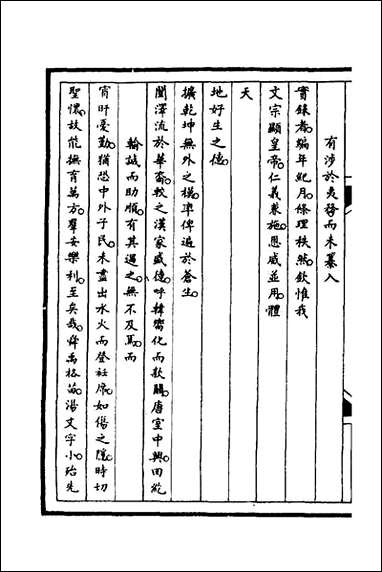 有涉於夷務而未纂入
實錄者編年紀月條理秩然欽惟我
文宗顯皇帝仁義兼施恩威並用體
天
地好生之德
擴乾坤無外之模準俾遍於蒼生
闓澤流於華裔較之漢家盛德呼韓嚮化而款關唐室中興回紇
輸誠而助順有其過之無不及焉而
宵旰憂勤猶恐中外子民未盡出水火而登衽席如傷之隱時切
聖懷故能撫育萬方羣安樂利至矣哉舜禹格苗湯文字小殆先